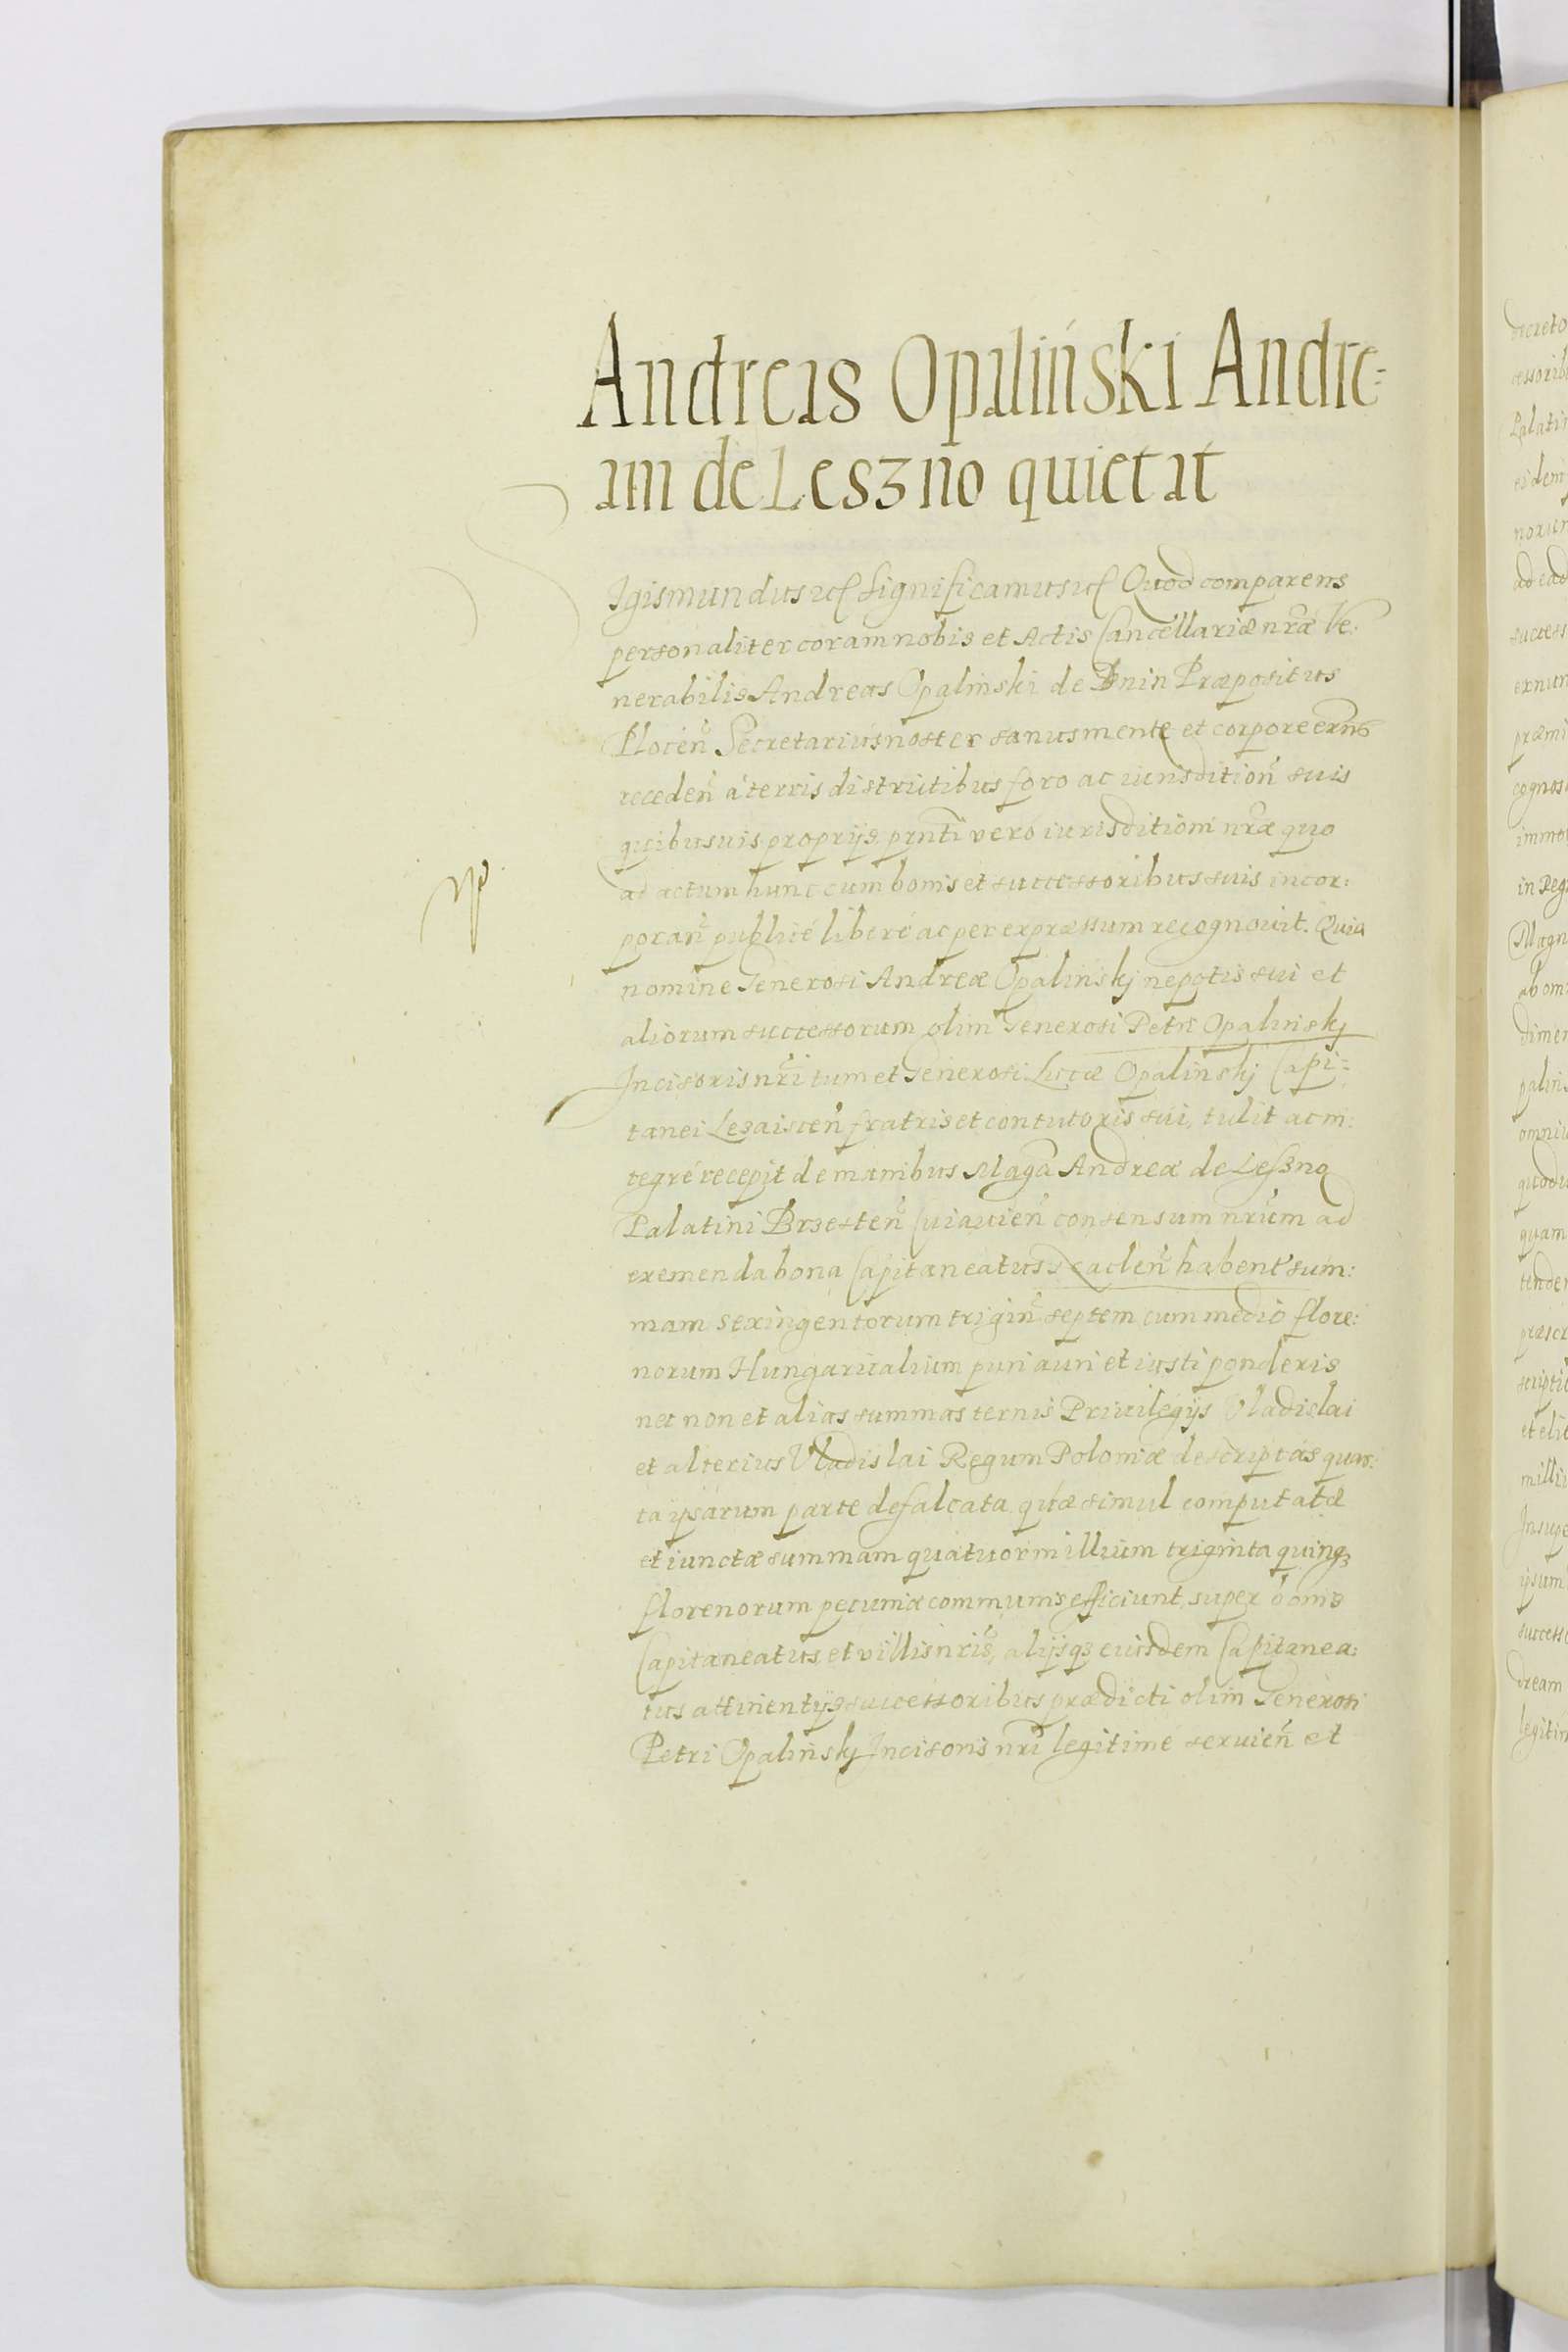 Andreas Opaliński Andre=
am de Leszno quietat
Igismundus etc Significamus etc Quod comparens
personaliter coram nobis et Actis Cancellariæ nrãe Ve:
nerabilis Andreas Opalinski de Bnin Præpositus
Plocen̄ Secretarius noster sanus mente et corpore exñs
receden̄ à terris districtibus foro ac iurisdition̄ suis
quibusuis proprijs, prñti vero iurisditioni nrãe quo
ad actum hunc cum bonis et successoribus suis incor:
poran̄ publicé liberé ac per expræssum recognouit. Quia
nomine Generosi Andreæ Opalinskj nepotis sui et
aliorum successorum olim Generosi Petri Opalinskj
Incisoris nrĩ tum et Generosi Lucæ Opalinskj Capi=
tanei Lezaiscen̄ fratris et contutoris sui, tulit ac in:
tegré recepit de manibus Magcã Andreæ de Leszno
Palatini Brzesten̄ Cuiauien̄ consensum nrũm ad
exemenda bona Capitaneatus habent sum:
mam sexingentorum trigin̄ septem cum medio flore:
norum Hungaricalium puri auri et iusti ponderis
nec non et alias summas ternis Priuilegijs Vladislai
et alterius Vladislai Regum Poloniæ descriptas quar:
ta ipsarum parte defalcata, quæ simul computatæ
et iunctæ summam quatuor millium triginta quinqz
florenorum pecuniæ communis efficiunt, super bonis
Capitaneatus et villis nrĩs, alijsqz eiusdem Capitanea:
tus attinentijs successoribus prædicti olim Generosi
Petri Opalinskj Incisoris nrĩ legitimé seruien̄ et